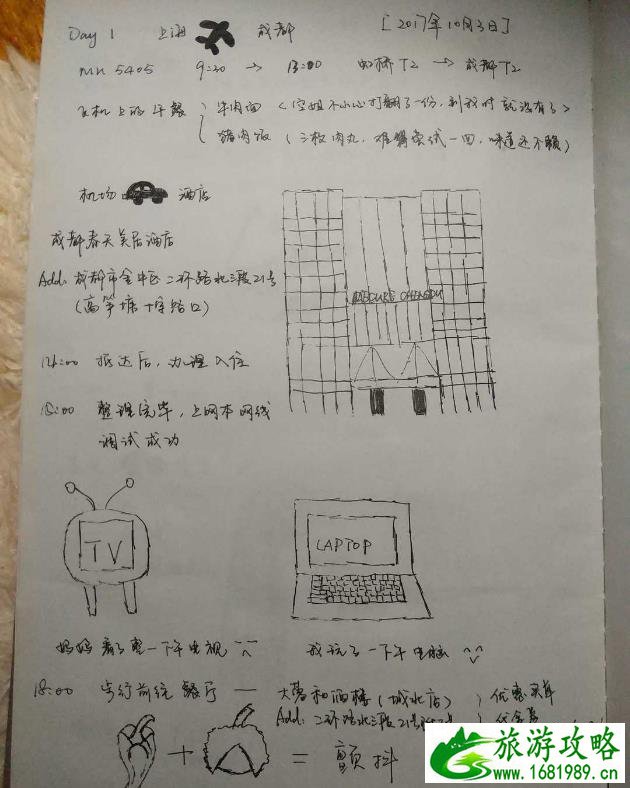 Day 1 上海 成都 [2017年10月3日]
MU 5405 9:20 → 13:00 虹桥T2 → 成都T2
飞机上的午餐 牛肉面 <空姐不小心打翻了一份，到我时就没有了>
猪肉饭 (三枚肉丸，难得尝试一回，味道还不赖)
机场 酒店
成都春天美居酒店
Add: 成都市金牛区二环路北三段21号
(高笋塘十字路口)
14:00 抵达后，办理入住
15:00 整理完毕，上网本网线
调试成功
MERCURE CHENGDU
TV
LAPTOP
妈妈看了整一下午电视 ^^
我玩了一下午电脑
18:00 步行前往餐厅 — 大蓉和酒楼(城北店) 优惠买单
Add: 二环路北三段21号
+ = 颤抖
旅游攻略
www.1681989.cn